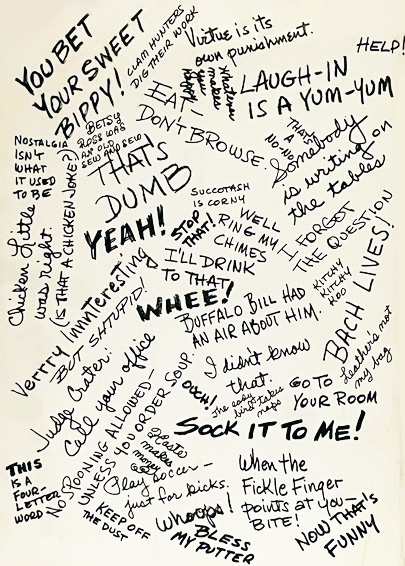 YOU BET
YOUR SWEET
BIPPY!
CLAM HUNTERS
DIG THEIR WORK
Virtue is its
own punishment.
HELP!
Whatever
you
makes
LAUGH-IN
IS A YUM-YUM
EAT-
DON'T BROWSE
NOSTALGIA
ISN'T
WHAT
IT USED
TO BE
BETSY
ROSS WAS
AN OLD
SEW AND SEW
THAT'S
A
NO-NO!
Somebody
is writing on
the tables
THAT'S
DUMB
SUCCOTASH
IS CORNY
Chicken Little
was right.
(IS THAT A CHICKEN JOKE?)
YEAH!
STOP
THAT!
WELL
RING MY
CHIMES
HI,
FORGOT
THE QUESTION
I'LL DRINK
TO THAT
Verrry Innnteresting
BUT SHTUPID!
WHEE!
KITCHY
KITCHY
KOO
BACH LIVES!
BUFFALO BILL HAD
AN AIR ABOUT HIM.
Judge Crater:
Call your office
I didn't know
that.
Leather's not
my bag
OUCH!
the easy
bird takes
naps
GO TO
YOUR ROOM
NO SPOONING ALLOWED-
UNLESS YOU ORDER SOUP.
SOCK IT TO ME!
THIS
IS A
FOUR-
LETTER
WORD
makes
money
Play soccer-
just for kicks.
When the
Fickle Finger
points at you-
BITE!
KEEP OFF
THE DUST
Whoops!
BLESS
MY PUTTER
NOW THAT'S
FUNNY